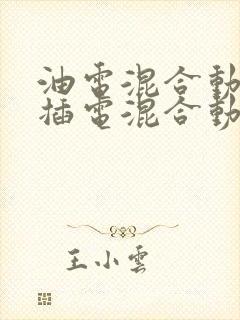 油電混合動
插電混合動
王小雲